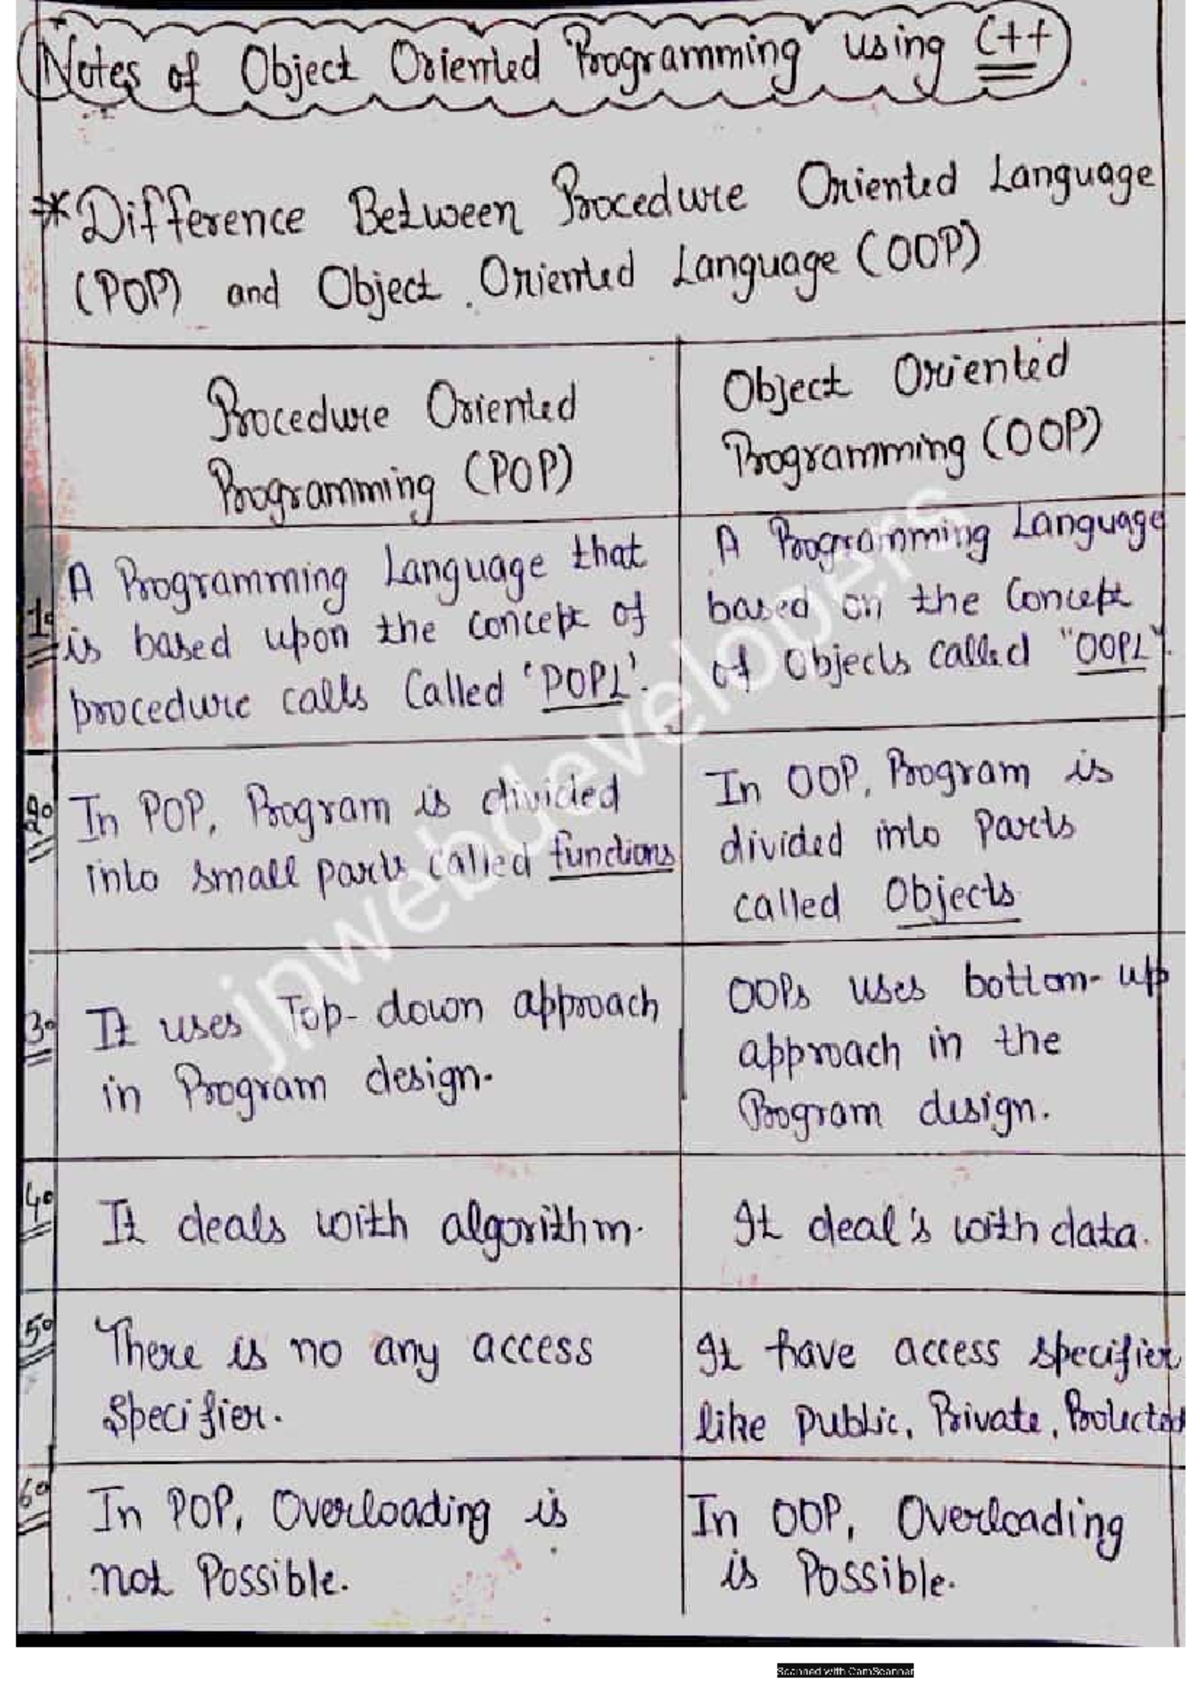 Notes of Object Oriented Programming using C++
* Difference Between Procedure Oriented Language
(POP) and Object Oriented Language (OOP)
Procedure Oriented
Programming (POP)
Object Oriented
Programming (OOP)
1.
A Programming Language that
is based upon the concept of
procedure calls Called 'POPL'.
A Programming Language
based on the Concept
of Objects called "OOPL".
2.
In POP, Program is divided
into small parts called functions
In OOP, Program is
divided into Parts
called Objects.
3.
It uses Top-down approach
in Program design.
OOPs uses bottom-up
approach in the
Program design.
4.
It deals with algorithm.
It deal's with data.
5.
There is no any access
specifier.
It have access specifier
like Public, Private, Protected
6.
In POP, Overloading is
not Possible.
In OOP, Overloading
is Possible.
jpwebdevelopers
Scanned with CamScanner